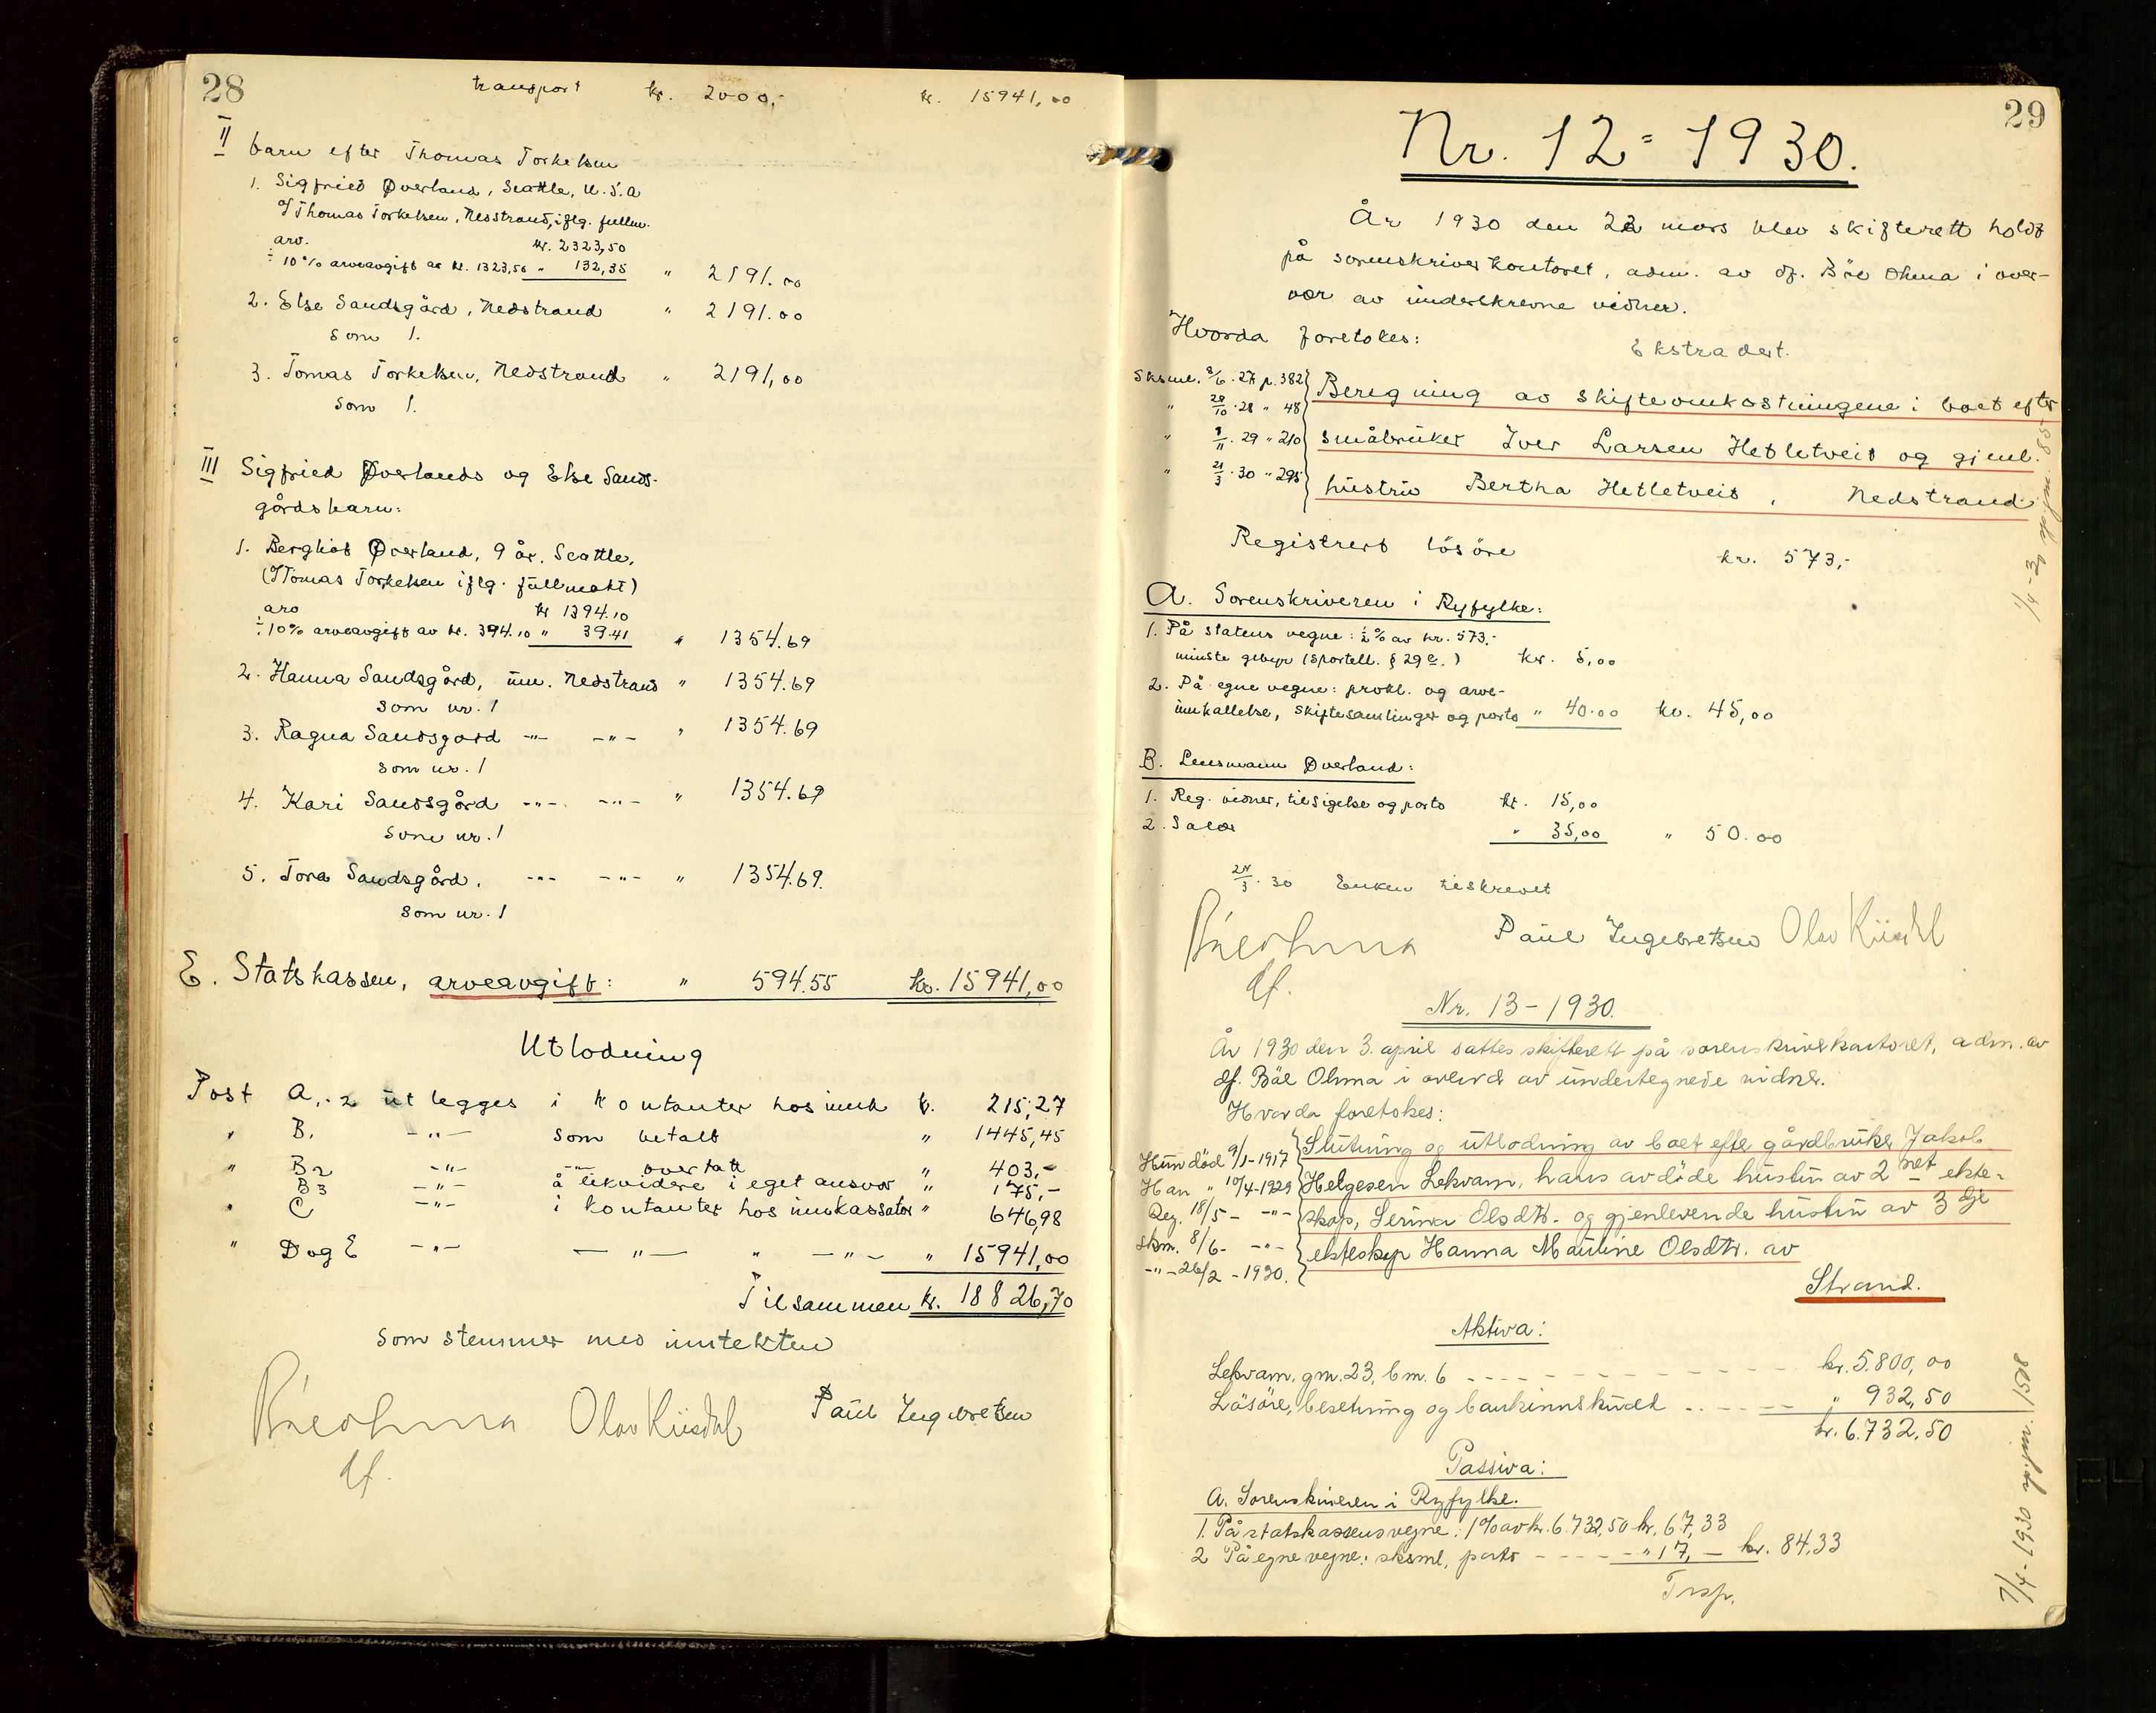 28
transport kr. 2000,- kr. 15941,00
II barn efter Thomas Torkelsen
1. Sigfried Øverland, Seattle, U.S.A
v/ Thomas Torkelsen, Nedstrand, iflg. fullm.
arv. kr. 2323,50
÷ 10% arveavgift av kr. 1323,50 " 132,35 " 2191.00
2. Else Sandsgård, Nedstrand " 2191.00
som 1.
3. Tomas Torkelsen, Nedstrand " 2191,00
som 1.
III Sigfried Øverlands og Else Sands-
gårds barn:
1. Bergliot Øverland, 9 år. Seattle,
(Tomas Torkelsen iflg. fullmakt)
arv kr 1394.10
÷ 10% arveavgift av kr. 394.10 " 39.41 " 1354.69
2. Hanna Sandsgård, um. Nedstrand " 1354.69
som nr. 1
3. Ragna Sandsgård -"- -"- " 1354.69
som nr. 1
4. Kari Sandsgård -"- -"- " 1354.69
som nr. 1
5. Tora Sandsgård. -"- -"- " 1354.69.
som nr. 1
E. Statskassen, arveavgift: " 594.55 kr. 15941,00
Utlodning
Post A,-2 utlegges i kontanter hos innk kr. 215,27
" B. -"- som betalt " 1445,45
" B2 -"- -"- overtatt " 403,-
B3 -"- å likvidere i eget ansvar " 175,-
" C -"- i kontanter hos innkassator " 646,98
" D og E -"- -"- " -"- " 15941,00
Tilsammen kr. 18826,70
som stemmer med inntekten
Båe Ohma Olav Kiisdal Paul Ingebretsen
df.
29
Nr. 12 = 1930.
År 1930 den 22 mars blev skifterett holdt
på sorenskriverkontoret, adm. av df. Båe Ohma i over-
vær av underskrevne vidner.
Hvorda foretokes:
Ekstradert.
Sksml. 8/6.27 p. 382 Beregning av skifteomkostningene i boet efter
" 29/10.28 " 48
" 8/11.29 " 210 småbruker Iver Larsen Hetletveit og gjenl.
" 21/3.30 " 295 hustru Bertha Hetletveit, Nedstrand
Registrert lösöre kr. 573,-
A. Sorenskriveren i Ryfylke:
1. På statens vegne: ½% av kr. 573,-
minste gebyr (sportell. § 29 c.) kr. 5,00
2. På egne vegne: prokl. og arve-
innkallelse, skiftesamlinger og porto " 40.00 kr. 45,00
B. Lensmann Øverland:
1. Reg. vidner, tilsigelse og porto kr. 15,00
2. Salær " 35,00 " 50.00
24/3.30 Enken tilskrevet
Båe Ohma Paul Ingebretsen Olav Kiisdal
df.
Nr. 13 - 1930.
År 1930 den 3. april sattes skifterett på sorenskriverkontoret, adm. av
df. Båe Ohma i overvær av undertegnede vidner.
Hvorda foretokes:
Hun död 9/1-1917 Slutning og utlodning av boet efter gårdbruker Jakob
Han " 10/4-1929 Helgesen Lekvam, hans avdöde hustru av 2net ekte-
Reg. 18/5 - -"- skap, Serina Olsdtr. og gjenlevende hustru av 3dje
skm. 8/6 - -"- ekteskap Hanna Mauline Olsdtr. av
-"- 26/2 - 1930.
Strand.
Aktiva:
Lekvam, gm. 23, bm. 6 kr. 5.800,00
Lösöre, besetning og bankinnskudd " 932,50
kr. 6.732,50
Passiva:
A. Sorenskriveren i Ryfylke.
1. På statskassens vegne: 1% av kr. 6.732,50 kr. 67,33
2 På egne vegne: sksml, porto " 17,- kr. 84,33
Trsp.